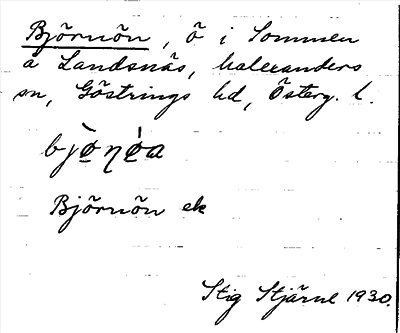 Björnön, ö i Sommen
å Landsnäs, Malexanders
sn, Göstrings hd, Österg. l.
bjö̀ṇö́a
Björnön ek
Stig Stjärne 1930.